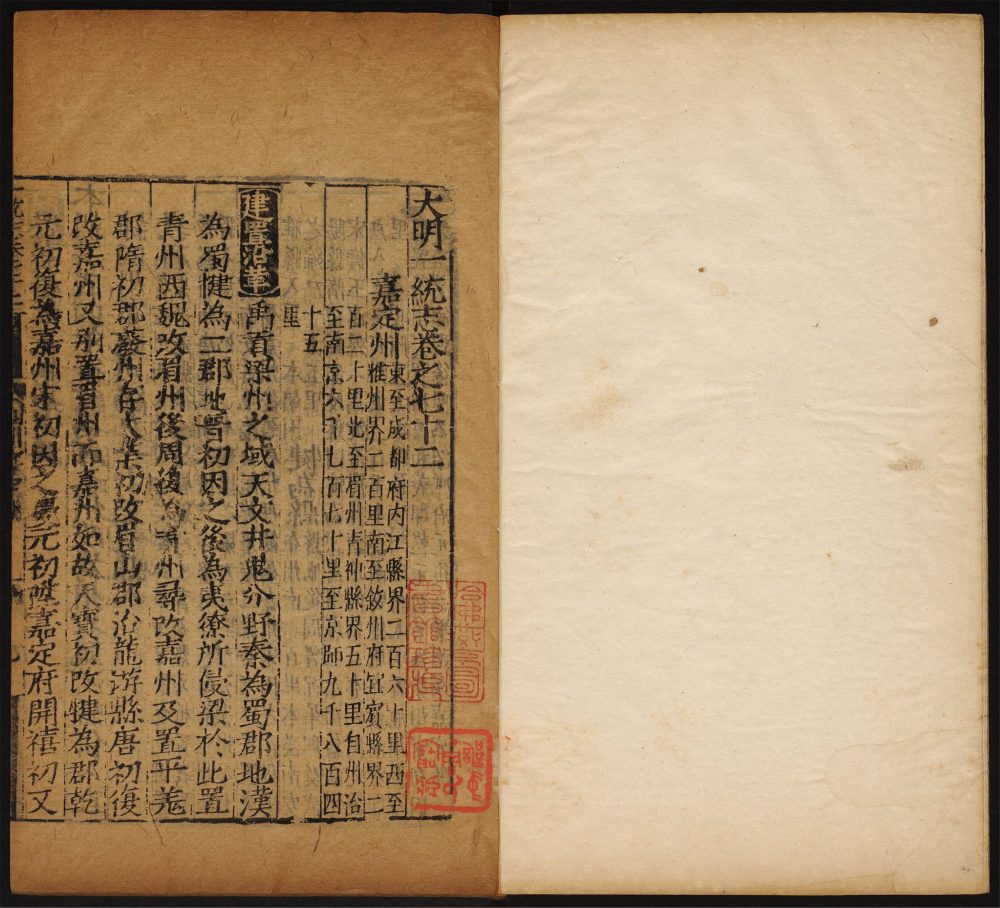 大明一統志卷之七十二
嘉定州
東至成都府内江縣界二百六十里西至
雅州界二百里南至敘州府宜賓縣界二
百二十里北至眉州青神縣界五十里自州治
至南京六千七百七十里至京師九千八百四
十五
里
建置沿革
禹貢梁州之域天文井鬼分野秦為蜀郡地漢
為蜀犍為二郡地晉初因之後為夷獠所侵梁於此置
青州西魏改眉州後周復為青州尋改嘉州及置平羌
郡隋初郡廢州存大業初改眉山郡治龍游縣唐初復
改嘉州又别置眉州而嘉州如故天寶初改犍為郡乾
元初復為嘉州宋初因之慶元初陞嘉定府開禧初又